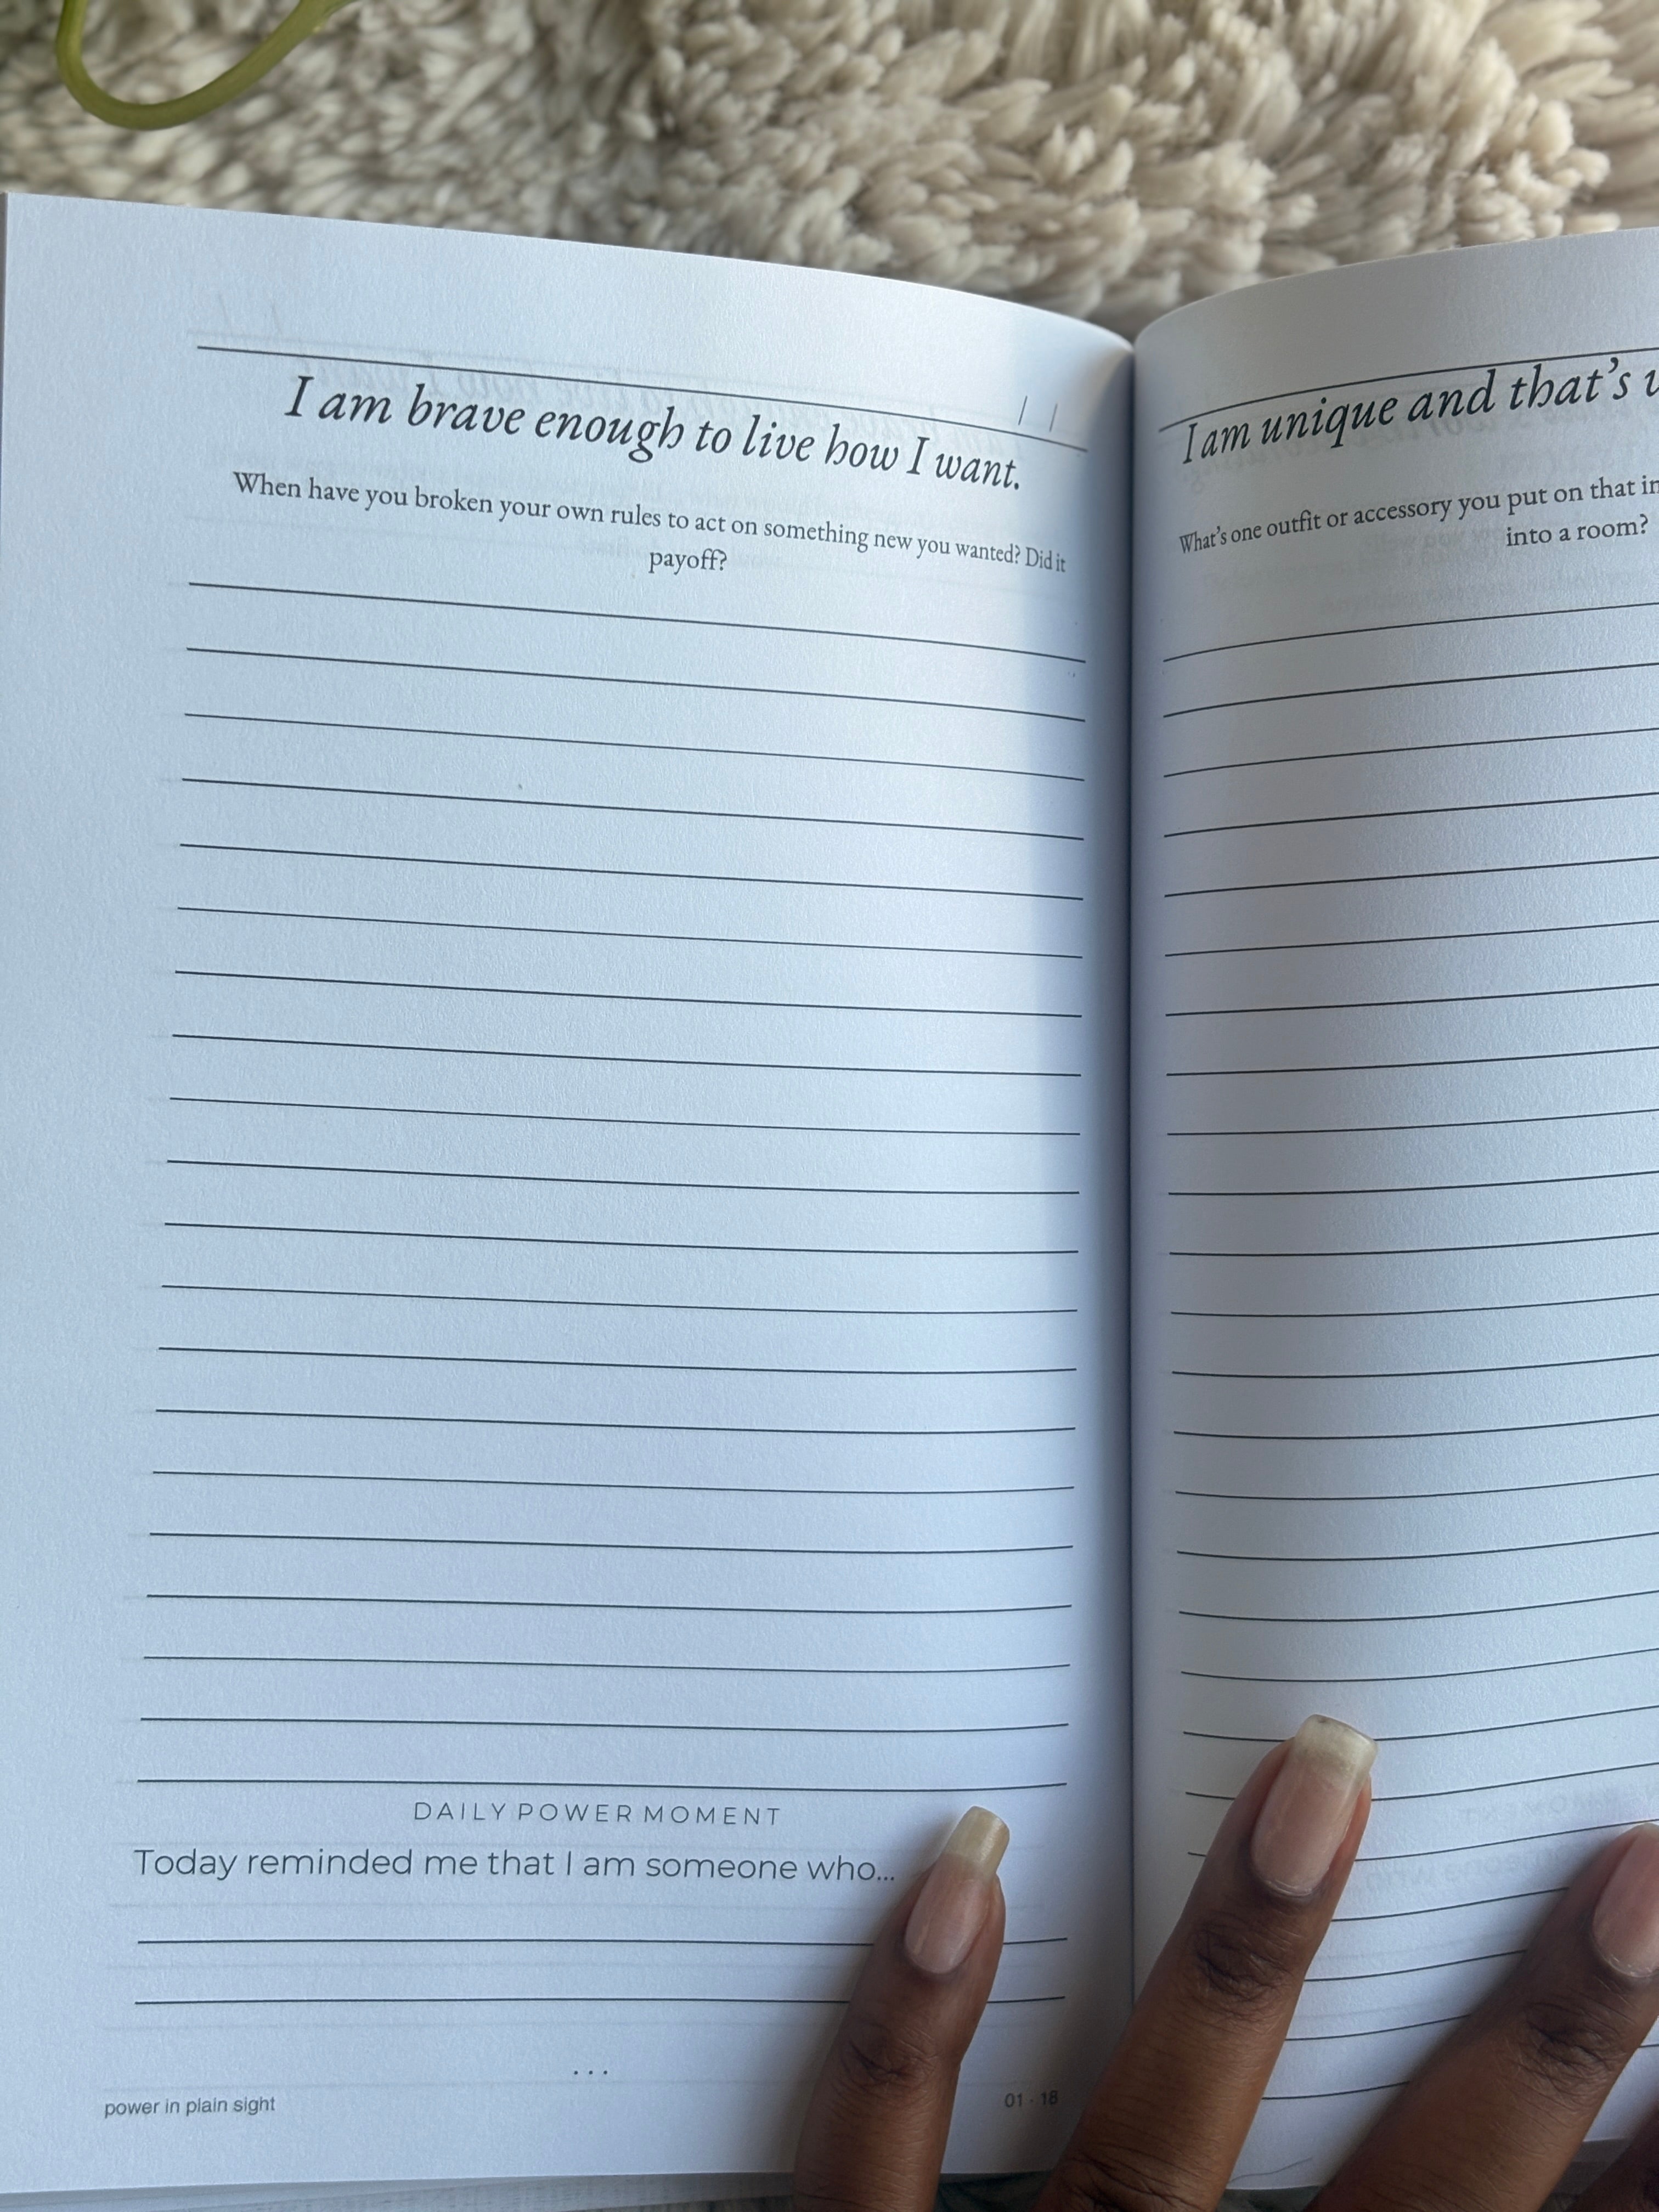 / /
I am brave enough to live how I want.
When have you broken your own rules to act on something new you wanted? Did it
payoff?
DAILY POWER MOMENT
Today reminded me that I am someone who...
...
power in plain sight
01 - 18
I am unique and that's
What's one outfit or accessory you put on that
into a room?